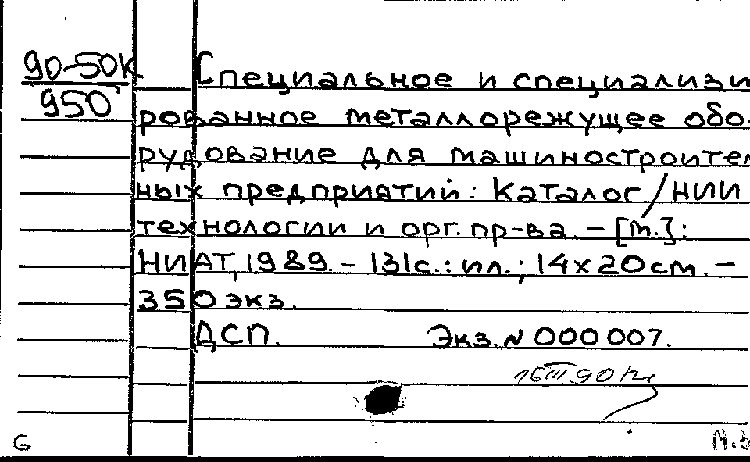 90-50к
950
Специальное и специализи
рованное металлорежущее обо-
рудование для машиностроител
ных предприятий: Каталог/НИИ
технологии и орг. пр-ва. – [М.]:
НИАТ, 1989. – 131с.: ил.; 14х20см. –
350экз.
ДСП. Экз. № 000007.
16 III 90
6